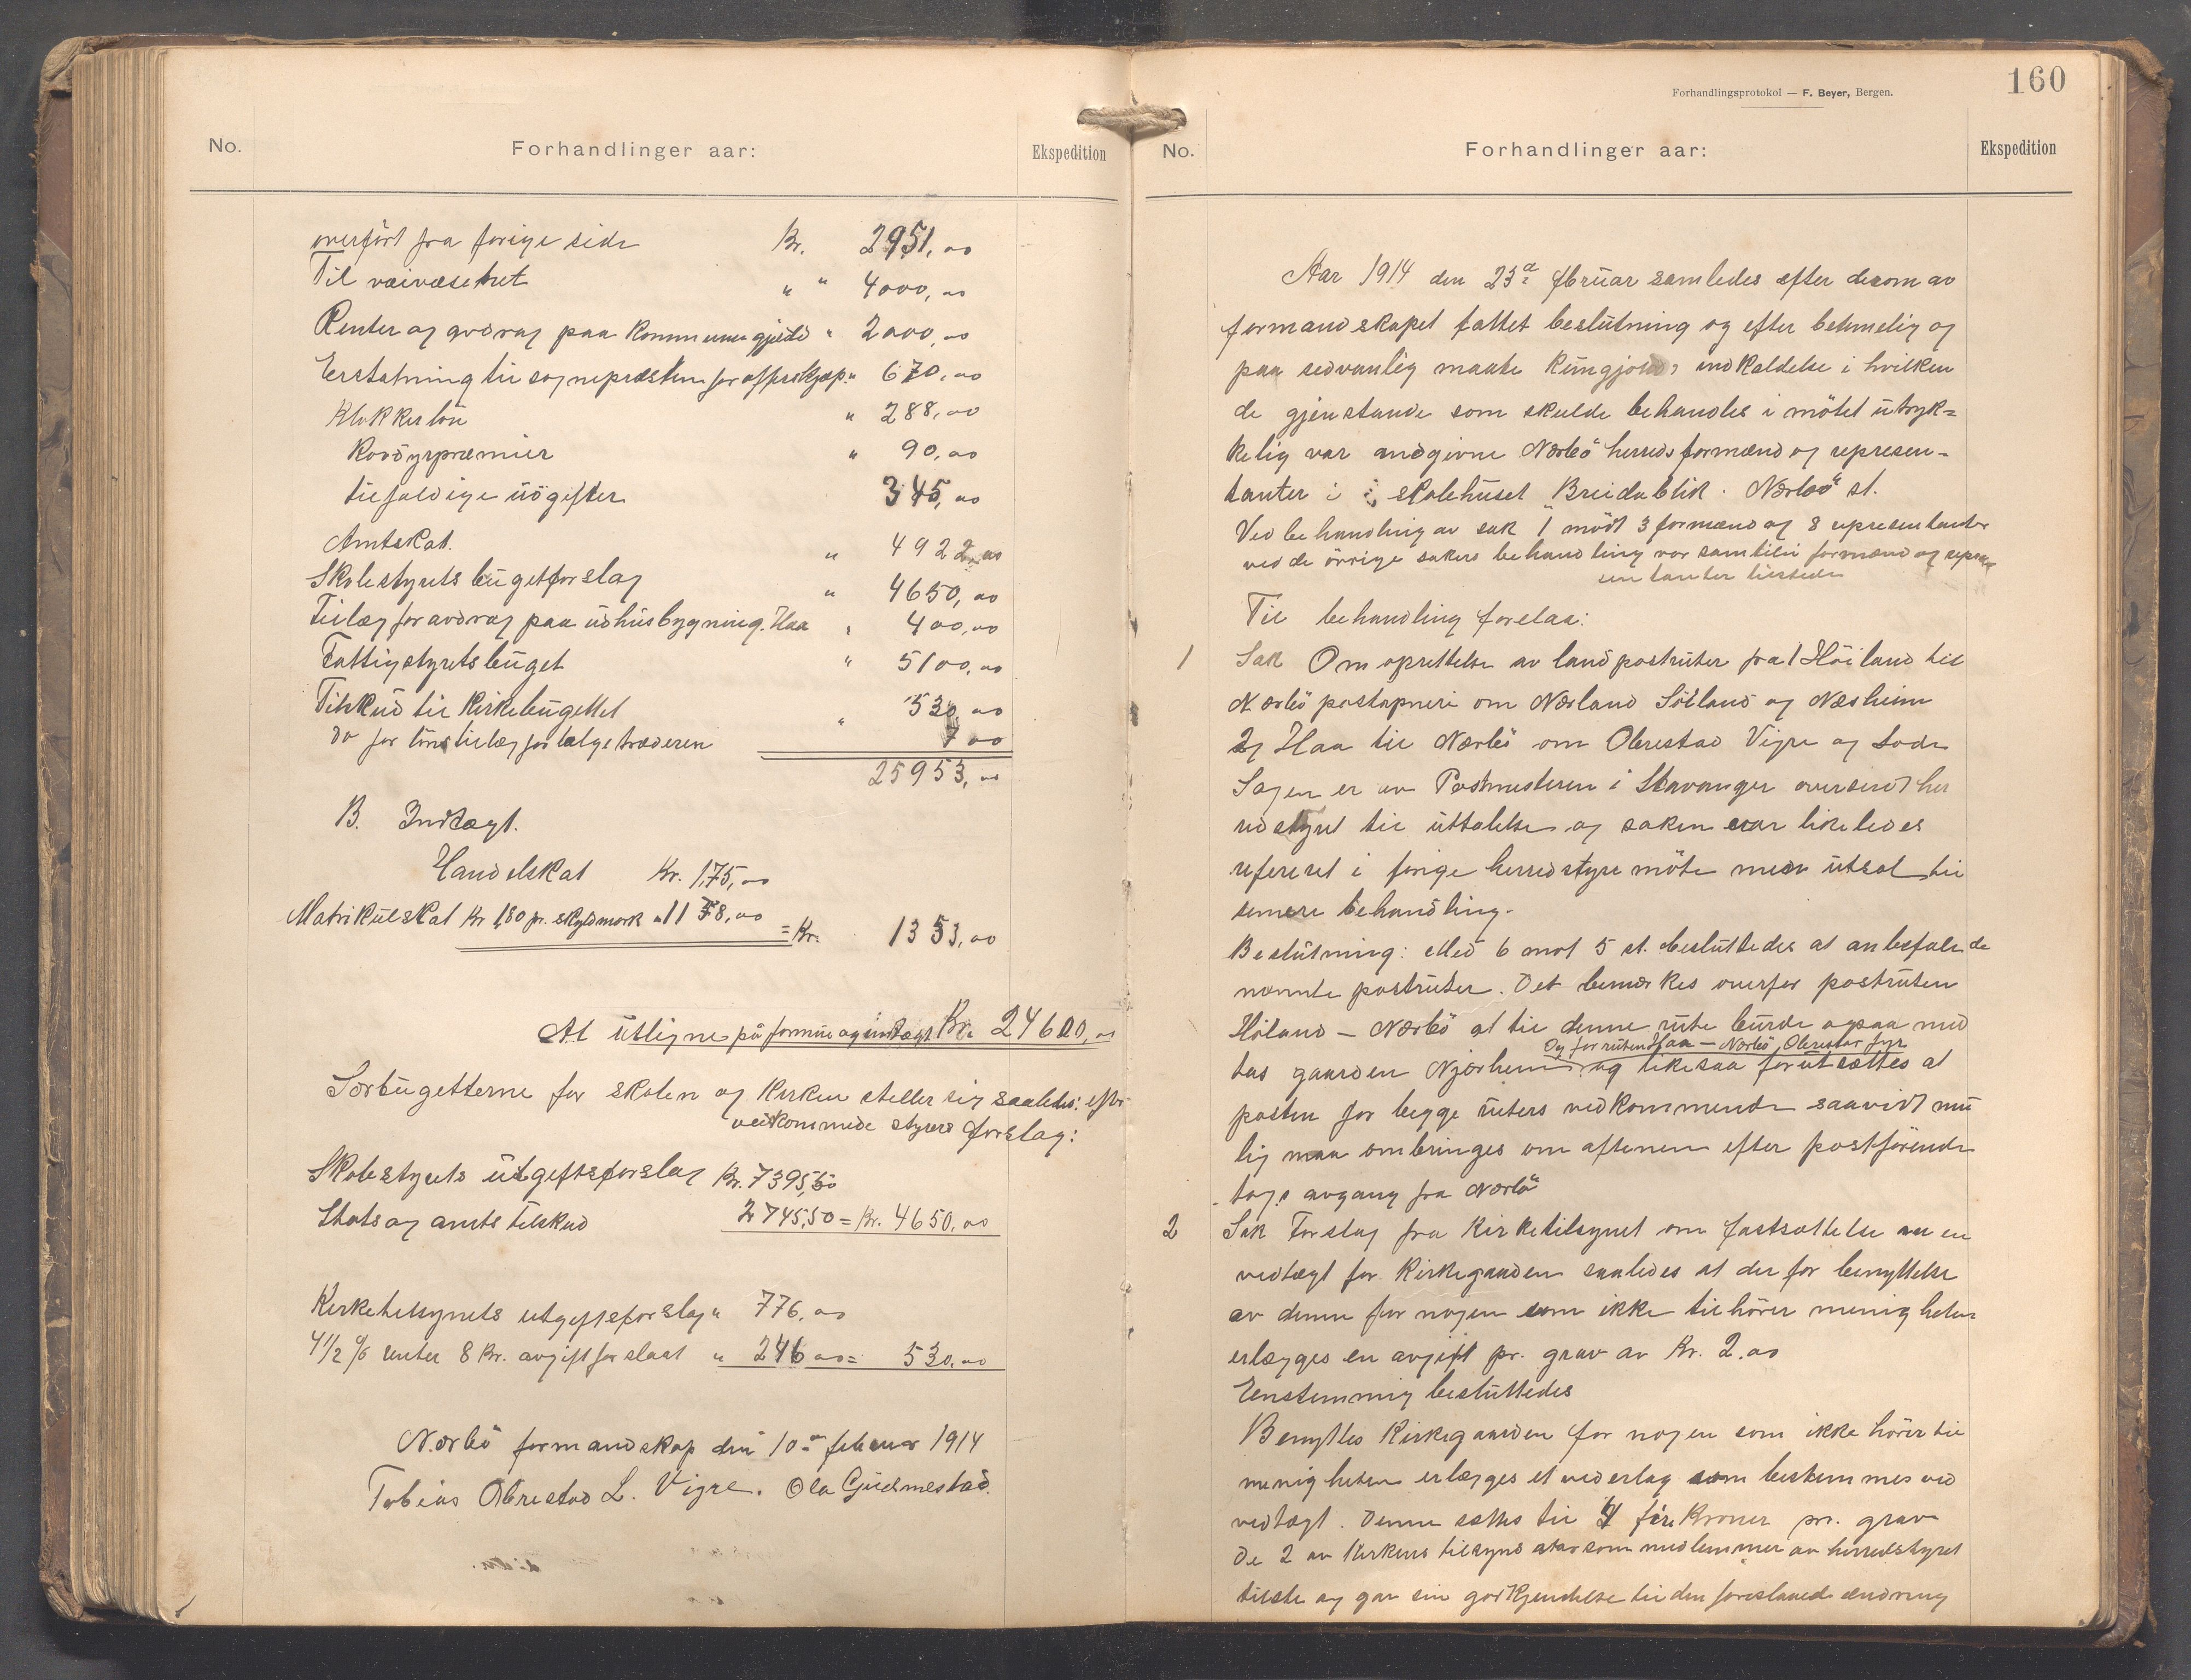 No.
Forhandlinger aar:
Ekspedition
overført fra forige side Kr. 2951,00
Til veivæsenet " " 4000,00
Renter og avdrag paa Kommunegjæld " 2000,00
Erstatning til sognepresten for offerskjæp. " 670,00
Klokkerløn " 288,00
Rovdyrpræmier " 90,00
tilfældige üdgifter 345,00
Amtskat. " 4922,00
Skolestyrets büdgetforslag " 4650,00
Tillæg for avdrag paa üdhüsbygning. Haa " 400,00
Fattigstyrets büget " 5100,00
Tilskud til Kirkebügettet " 530,00
do for lönstillæg for 7,00
25953,00
B. Indtægt.
Handelskat Kr. 175,00
Matrikülskat Kr 1,80 pr. skyldmark " 1178,00
= Kr. 1353,00
At ütligne på formüe og indtægt Kr. 24600,00
Særbügetterne for skolen og Kirken stiller sig saaledes: efter
vedkommede styrers forslag:
Skolestyrets ütgeftsforslag Kr. 7395,50
Stats og amts tilskud 2745,50 = Kr. 4650,00
Kirketilsynets utgeftsforslag " 776,00
4 1/2 % renter 8 Kr. avgift for slaat " 246,00 = 530,00
Nærbö formandskap den 10de februar 1914
Tobias Obrestad L. Vigre. Ola Gudmestad.
Forhandlingsprotokol — F. Beyer, Bergen.
160
No.
Forhandlinger aar:
Ekspedition
Aar 1914 den 23de februar samledes efter derom av
formandskapet fattet beslütning og efter betimelig og
paa sedvanlig maate Küngjord indkaldelse i hvilken
de gjenstande som skulde behandles i mötet ütryk=
kelig var andgivne Nærbö herreds formænd og represen-
tanter i skolehüset "Breidablik" Nærbö st.
Ved behandling av sak 1 mödt 3 formænd og 8 representanter
ved de övrige sakers behandling var samtlige formænd og repre
sentanter tilstede
Til behandling forelaa:
1 Sak Om oprettelse av landpostrüter fra 1 Höiland til
Nærbö postapneri om Nærland Sötland og Næsheim
2) Haa til Nærbö om Obrestad Vigre og Lode
Sagen er av Postmesteren i Stavanger oversendt her
redstyret til üttalelse og saken var likeledes
refereret i forige herredstyremöte men ütsat til
senere behandling.
Beslütning: Med 6 mot 5 st. beslüttedes at anbefale de
nævnte postrüter. Det bemærkes overfor postrüten
Höland — Nærbö at til denne rüte bürde ogsaa med
Og for rüten Haa — Nærbö, Obrestad fyr
tas gaarden Njærheim og likesaa forütsættes at
posten for begge rüters vedkommende saavidt mü
lig maa ombringes om aftenen efter postförende
togs avgang fra Nærbö
2 Sak Forslag fra Kirketilsynet om fastsættelse av en
vedtægt for Kirkegaarden saaledes at der for benyttelse
av denne for nogen som ikke tilhörer menigheten
erlægges en avgift pr. grav av Kr. 2.00
Eenstemmig beslüttedes
Benyttes Kirkegaarden for nogen som ikke hörer til
menigheten erlægges et vederlag som bestemmes ved
vedtægt. Denne sættes til 4 fire Kroner pr. grav
De 2 av Kirkens tilsyns som medlemmer av herredstyret
tilste og gav sin godkjendelse til den foreslaaede ændring